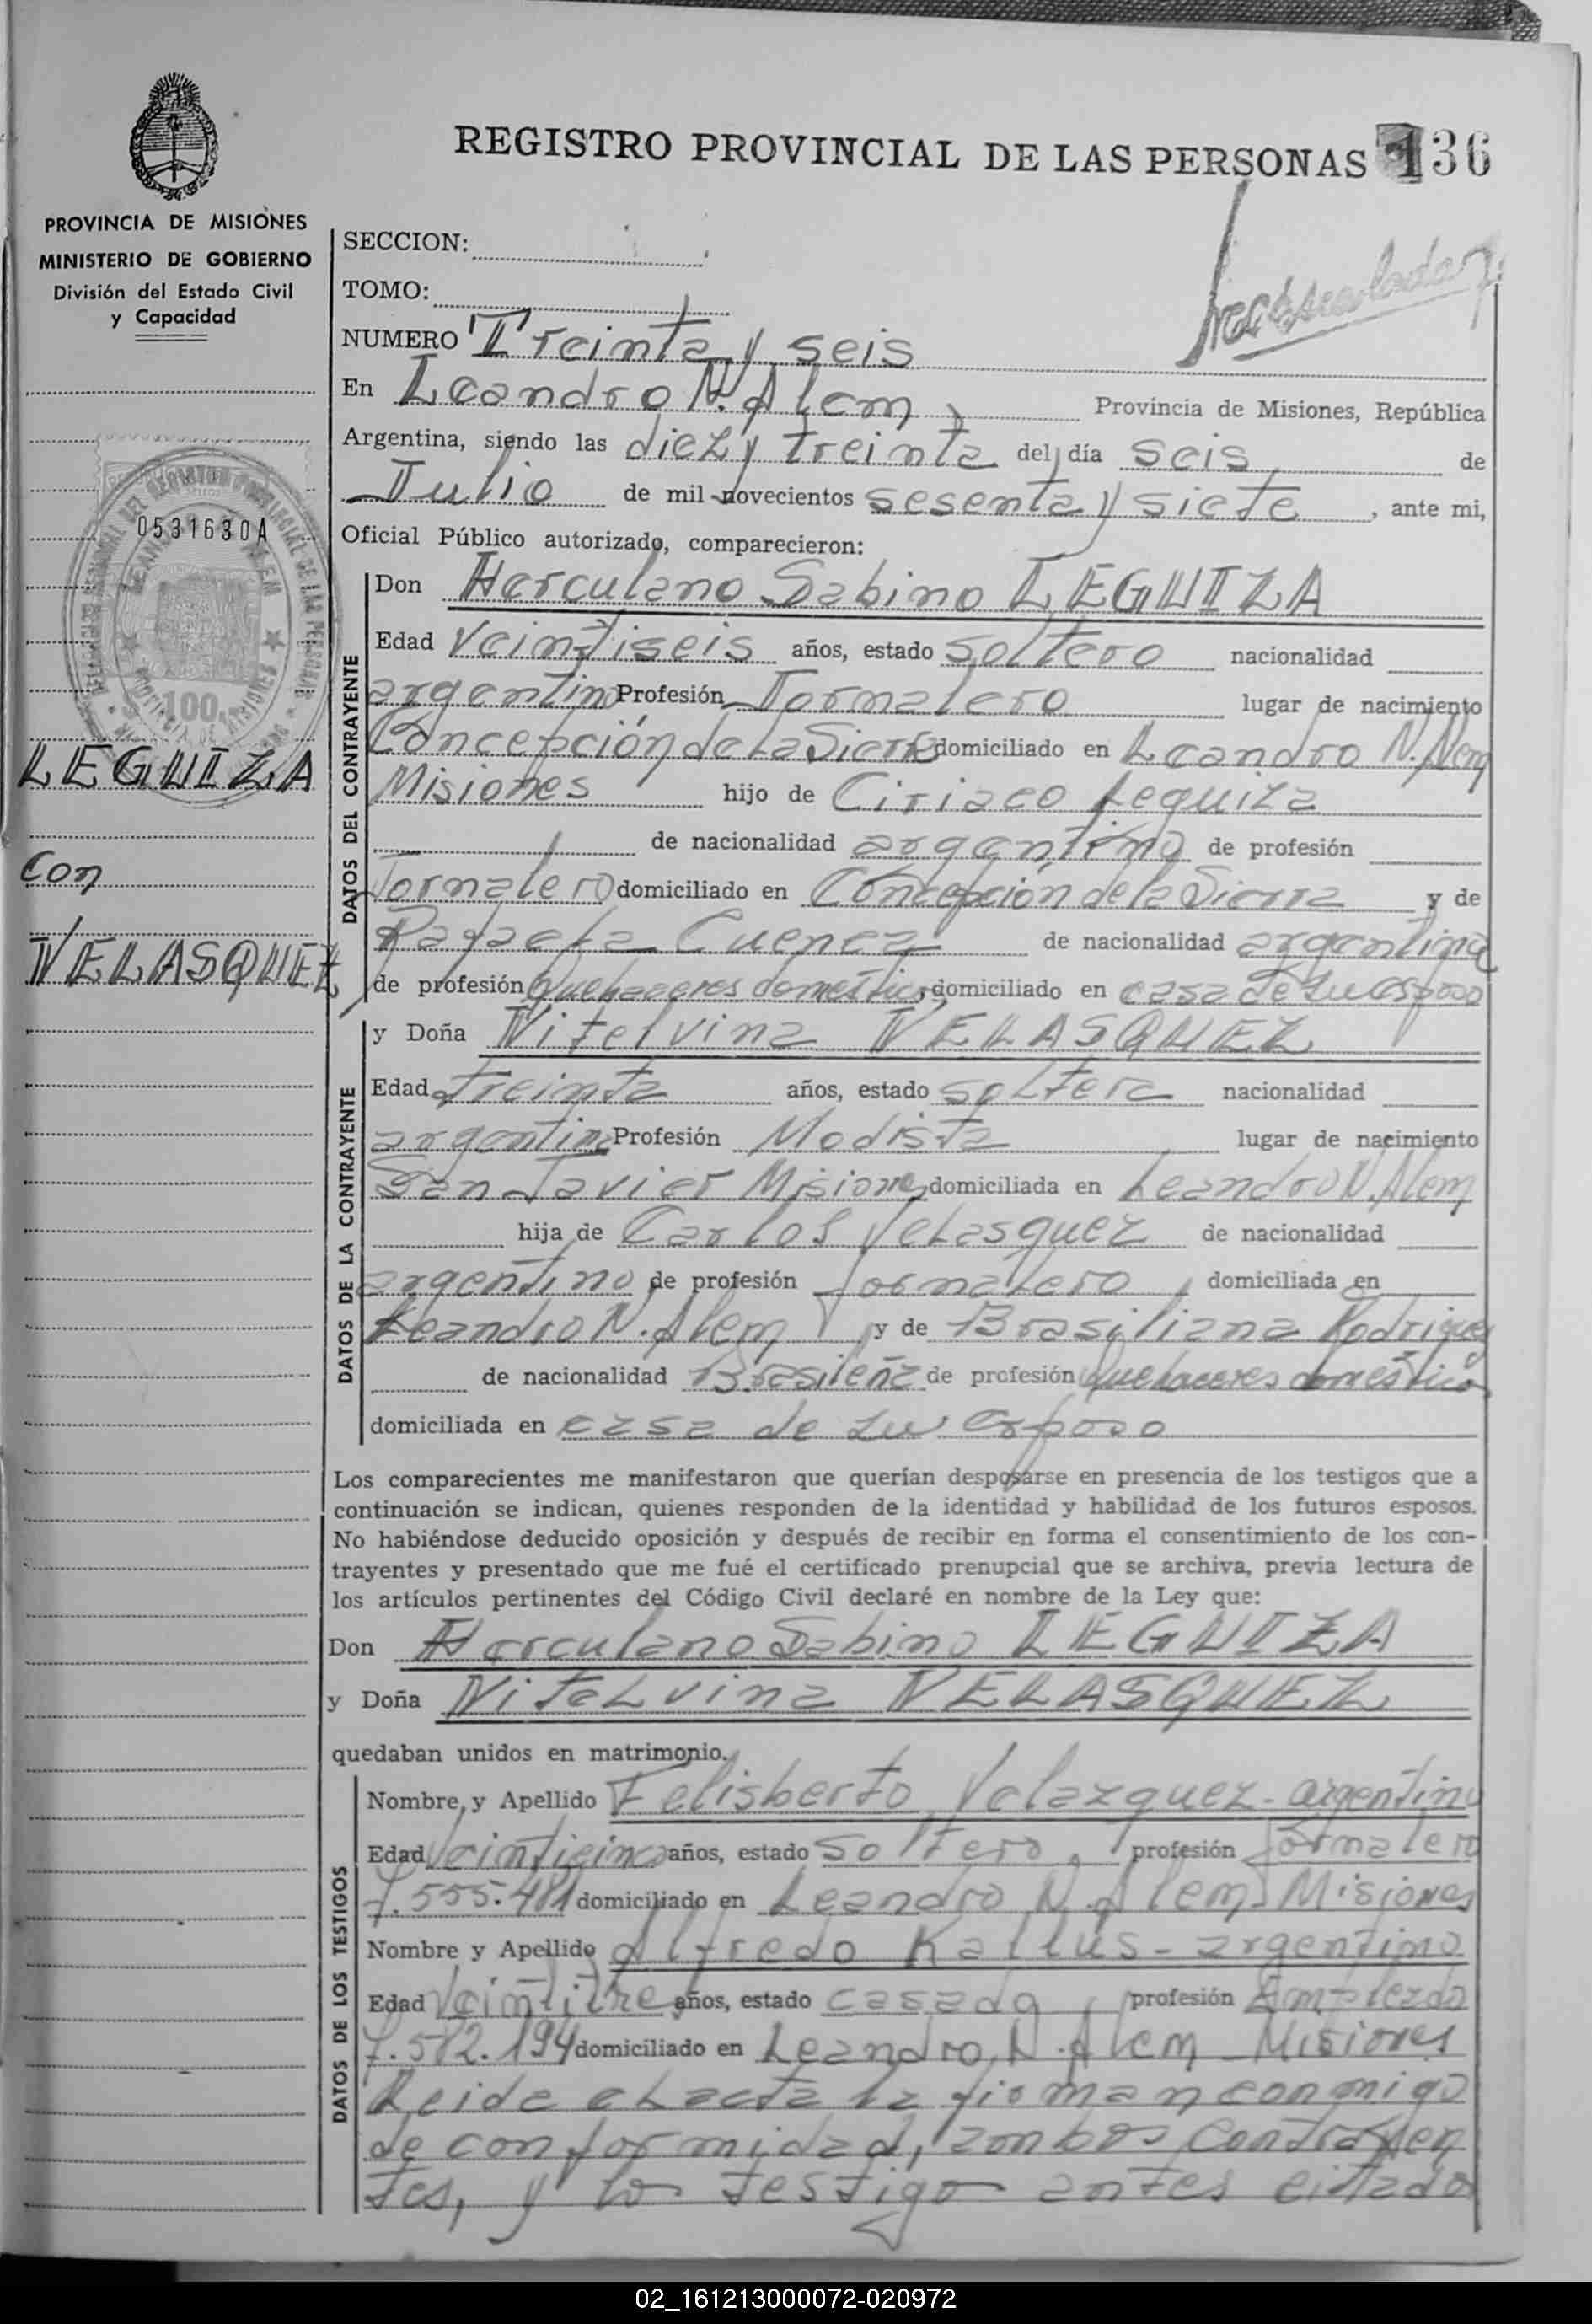 REGISTRO PROVINCIAL DE LAS PERSONAS 136
PROVINCIA DE MISIONES
MINISTERIO DE GOBIERNO
División del Estado Civil
y Capacidad
0531630A
100
LEGUIZA
con
VELASQUEZ
SECCION:
TOMO:
NUMERO Treinta y seis
En Leandro N. Alem, Provincia de Misiones, República
Argentina, siendo las diez y treinta del día seis de
Julio de mil novecientos sesenta y siete, ante mi,
Oficial Público autorizado, comparecieron:
DATOS DEL CONTRAYENTE
Don Herculano Sabino LEGUIZA
Edad veintiseis años, estado soltero nacionalidad
argentino Profesión Jornalero lugar de nacimiento
Concepción de la Sierra domiciliado en Leandro N. Alem
Misiones hijo de Ciriaco Leguiza
de nacionalidad argentino de profesión
Jornalero domiciliado en Concepción de la Sierra y de
Rafaela Cuenca de nacionalidad argentina
de profesión Quehaceres domésticos domiciliado en casa de su esposo
DATOS DE LA CONTRAYENTE
y Doña Nitelvina VELASQUEZ
Edad treinta años, estado soltera nacionalidad
argentina Profesión Modista lugar de nacimiento
San Javier Misiones domiciliada en Leandro N. Alem
hija de Carlos Velasquez de nacionalidad
argentino de profesión jornalero, domiciliada en
Leandro N. Alem, y de Brasiliana Rodriguez
de nacionalidad Brasileña de profesión Quehaceres domésticos
domiciliada en casa de su esposo
Los comparecientes me manifestaron que querían desposarse en presencia de los testigos que a
continuación se indican, quienes responden de la identidad y habilidad de los futuros esposos.
No habiéndose deducido oposición y después de recibir en forma el consentimiento de los con-
trayentes y presentado que me fué el certificado prenupcial que se archiva, previa lectura de
los artículos pertinentes del Código Civil declaré en nombre de la Ley que:
Don Herculano Sabino LEGUIZA
y Doña Nitelvina VELASQUEZ
quedaban unidos en matrimonio.
DATOS DE LOS TESTIGOS
Nombre y Apellido Felisberto Velazquez - argentino
Edad veinticinco años, estado soltero, profesión Jornalero
7.555.481 domiciliado en Leandro N. Alem - Misiones
Nombre y Apellido Alfredo Kallus - argentino
Edad veintitres años, estado casado, profesión Empleado
7.582.194 domiciliado en Leandro, N. Alem - Misiones
Leida el acta la firman conmigo
de conformidad, ambos contrayen
tes, y los testigos antes citados
02_161213000072-020972